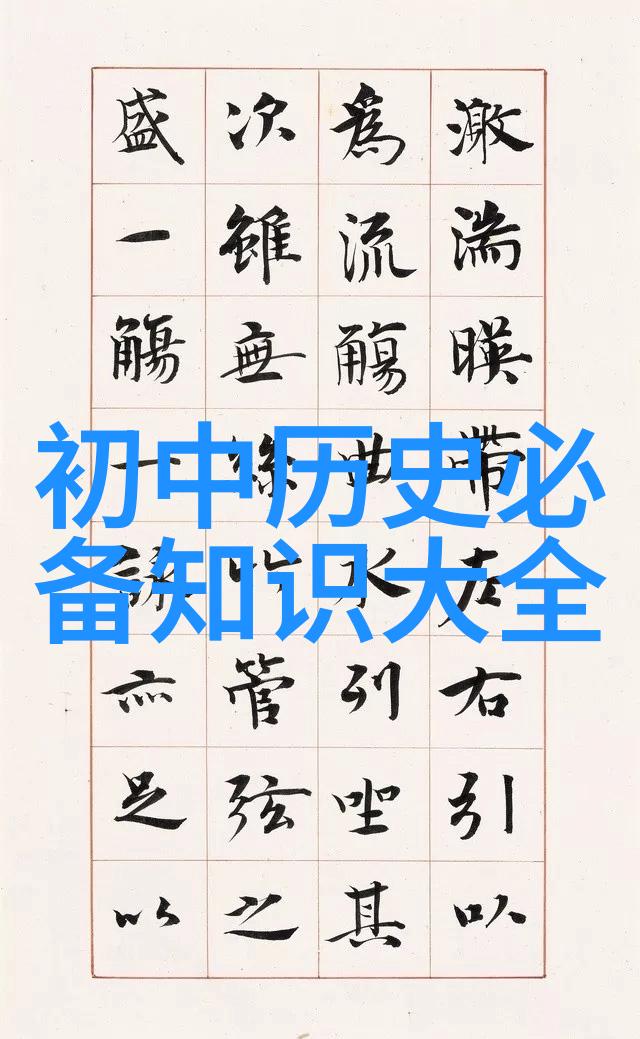 激湍暎帶左右引以
為流觴曲水列坐其
次雖無絲竹管弦之
盛一觴一詠亦足以
初中历史必
备知识大全